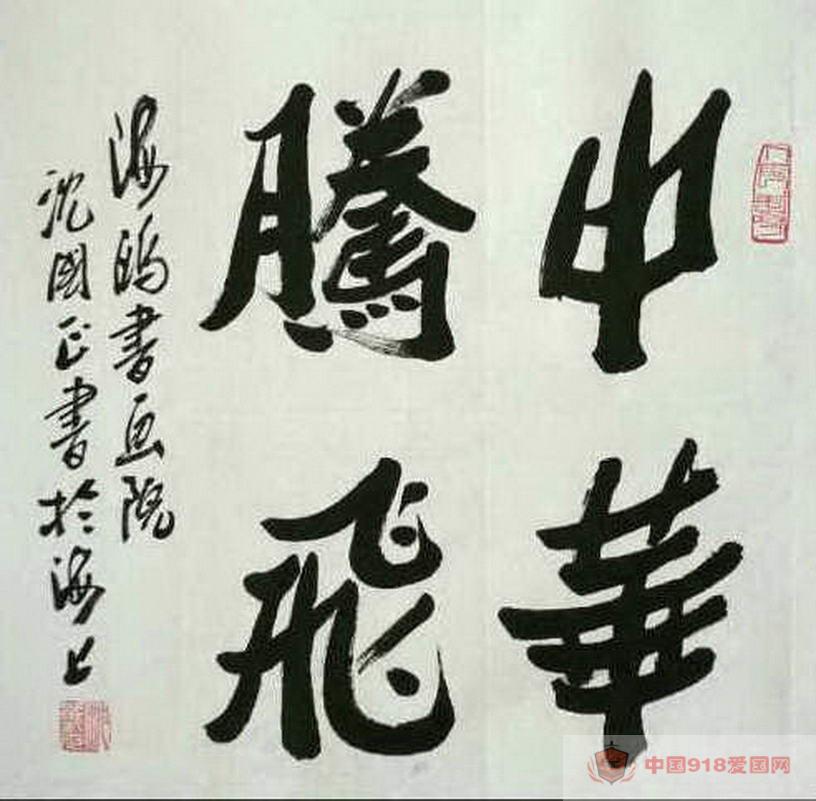 中華
騰飛
海鸥書画院
沈國正書於海上
中国918爱国网